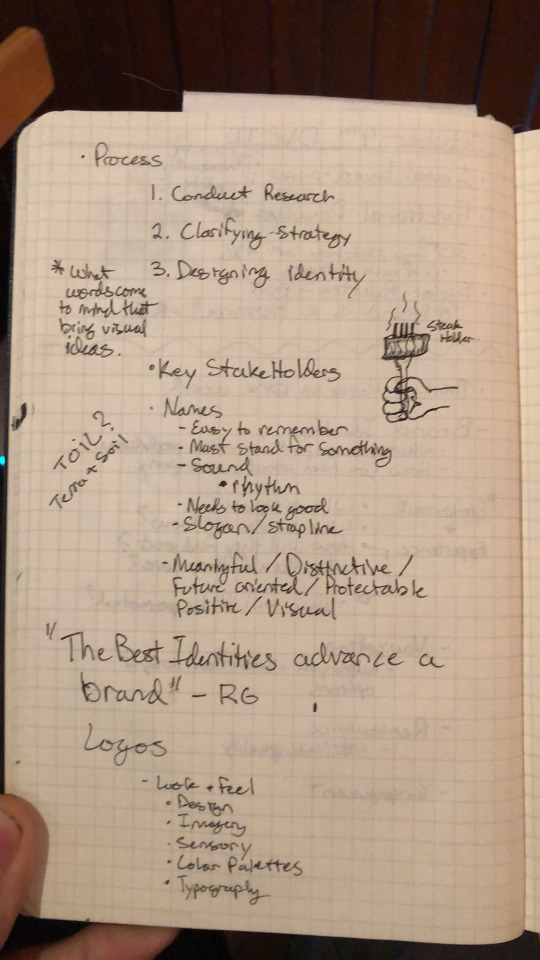 • Process
1. Conduct Research
2. Clarifying Strategy
3. Designing identity
* What
words come
to mind that
bring visual
ideas.
Steak
Holder
• Key StakeHolders
• Names
- Easy to remember
- Must stand for something
- Sound
• rhythm
- Needs to look good
- Slogan / strapline
TOIL?
Terra + Soil
- Meaningful / Distinctive /
Future oriented / Protectable
Positive / Visual
"The Best Identities advance a
brand" - RG
Logos
- Look + Feel
• Design
• Imagery
• Sensory
• Color Palettes
• Typography